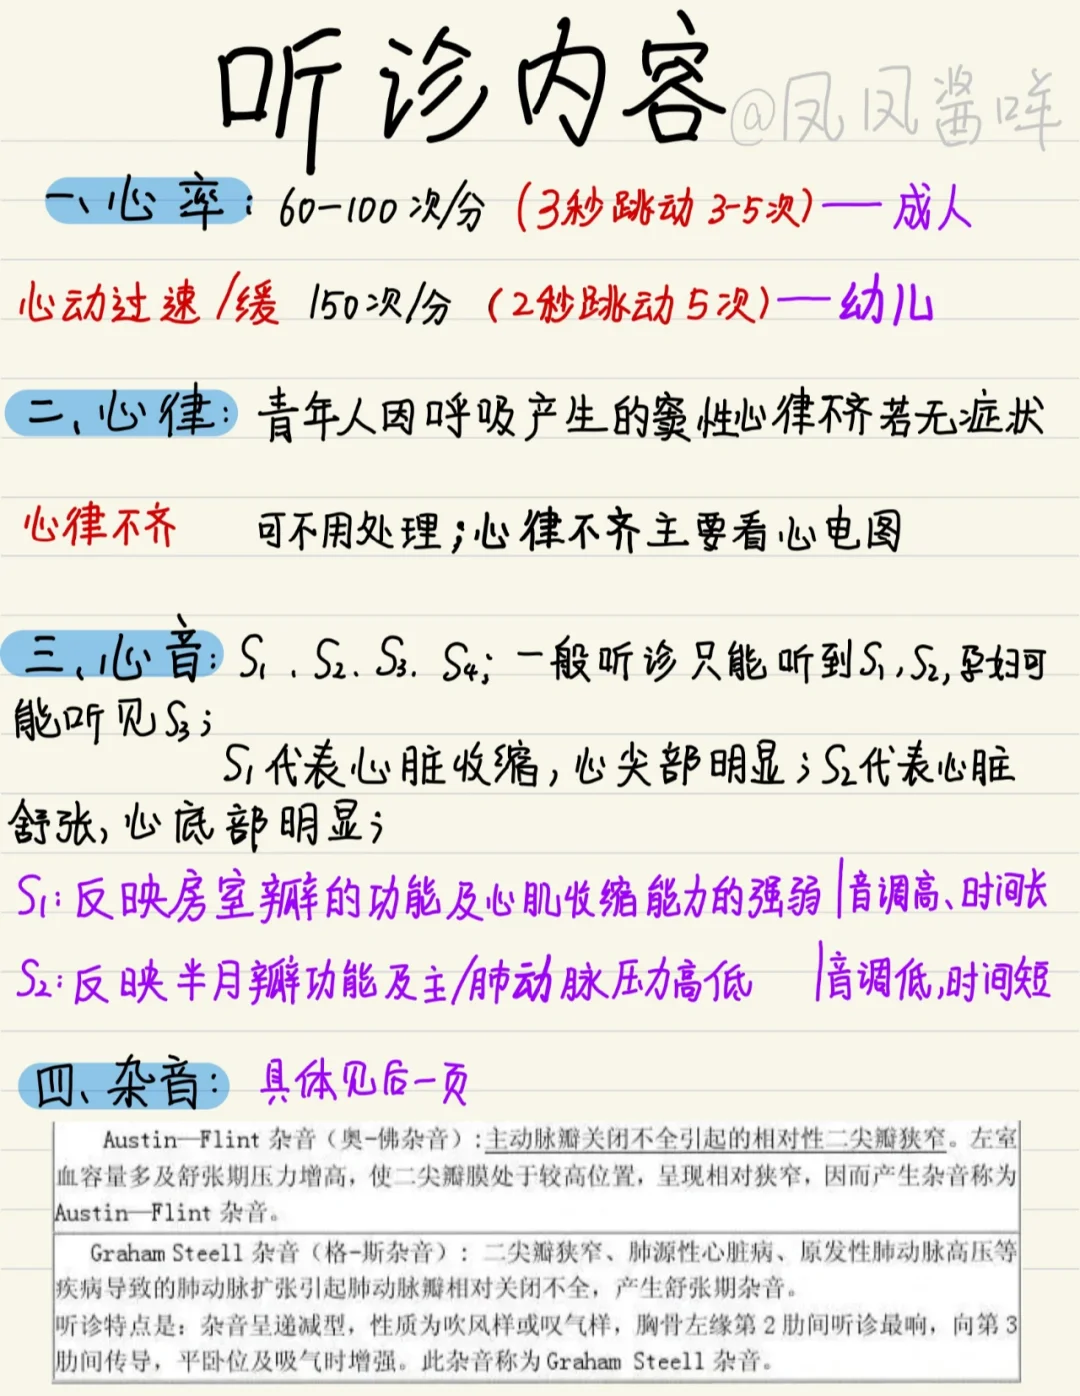 听诊内容
@凤凤酱咩
一、心率：60-100次/分（3秒跳动3-5次）—成人
心动过速/缓 150次/分（2秒跳动5次）—幼儿
二、心律：青年人因呼吸产生的窦性心律不齐若无症状
心律不齐 可不用处理；心律不齐主要看心电图
三、心音：S₁、S₂、S₃、S₄；一般听诊只能听到S₁、S₂,孕妇可
能听见S₃；
S₁代表心脏收缩,心尖部明显；S₂代表心脏
舒张,心底部明显；
S₁：反映房室瓣的功能及心肌收缩能力的强弱|音调高、时间长
S₂：反映半月瓣功能及主/肺动脉压力高低 |音调低,时间短
四、杂音：具体见后一页
Austin—Flint 杂音（奥-佛杂音）:主动脉瓣关闭不全引起的相对性二尖瓣狭窄。左室
血容量多及舒张期压力增高，使二尖瓣膜处于较高位置，呈现相对狭窄，因而产生杂音称为
Austin—Flint 杂音。
Graham Steell 杂音（格-斯杂音）：二尖瓣狭窄、肺源性心脏病、原发性肺动脉高压等
疾病导致的肺动脉扩张引起肺动脉瓣相对关闭不全，产生舒张期杂音。
听诊特点是：杂音呈递减型，性质为吹风样或叹气样，胸骨左缘第2肋间听诊最响，向第3
肋间传导，平卧位及吸气时增强。此杂音称为Graham Steell 杂音。